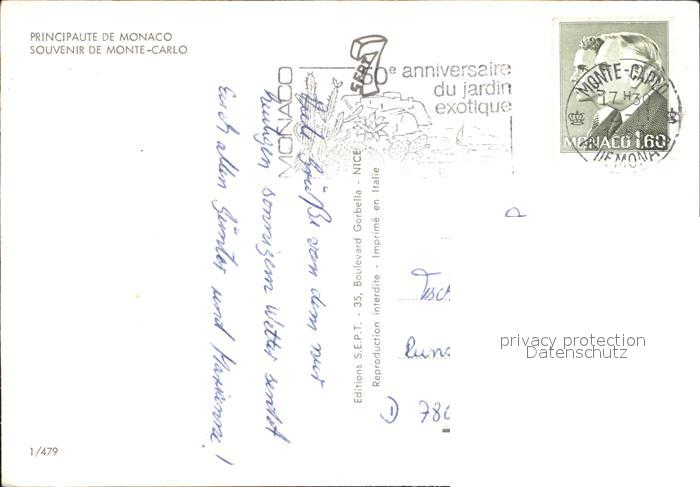 PRINCIPAUTE DE MONACO
SOUVENIR DE MONTE-CARLO
MONACO
SEPT
50e anniversaire
du jardin
exotique
MONTE-CARLO
17 H30
MONACO 1,60
Grüße von dem nur
heutigen sonnigem Wetter sendet
Euch allen Günter und Marianne!
Editions S.E.P.T. - 35, Boulevard Gorbella - NICE
Reproduction interdite - Imprimé en Italie
P
privacy protection
Datenschutz
1/479